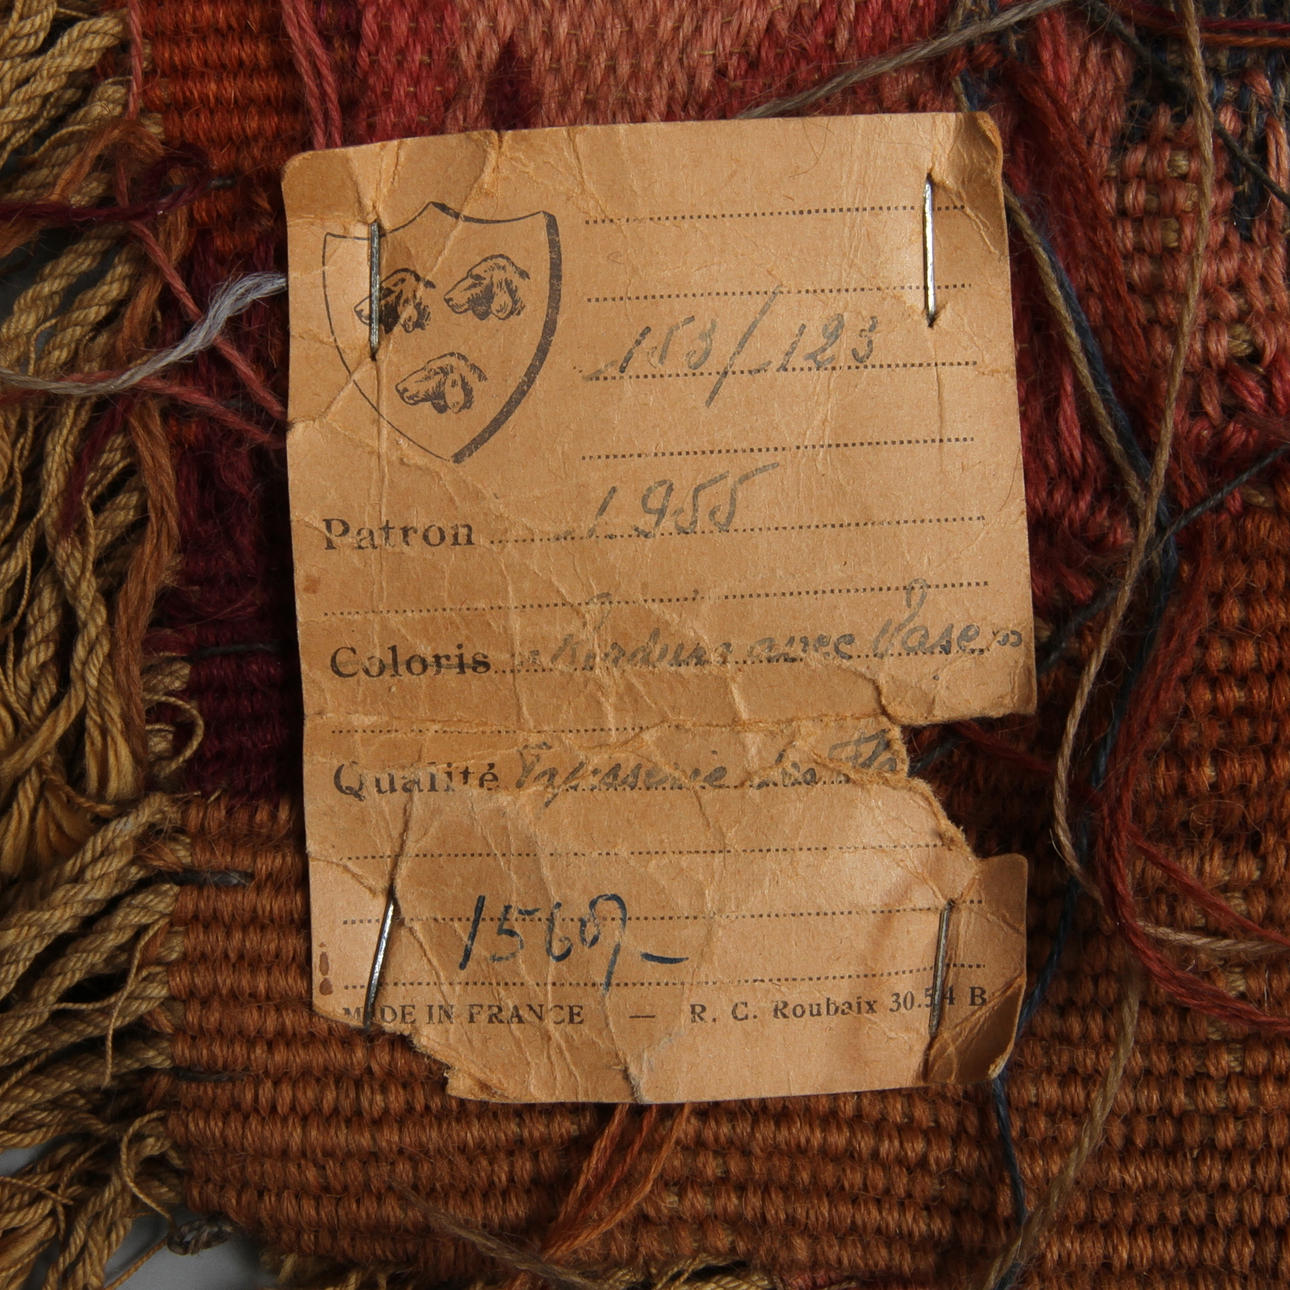 153/123
Patron 1955
Coloris Verdure avec Vase
Qualité Tapisserie
1567-
MADE IN FRANCE — R. C. Roubaix 30.594 B